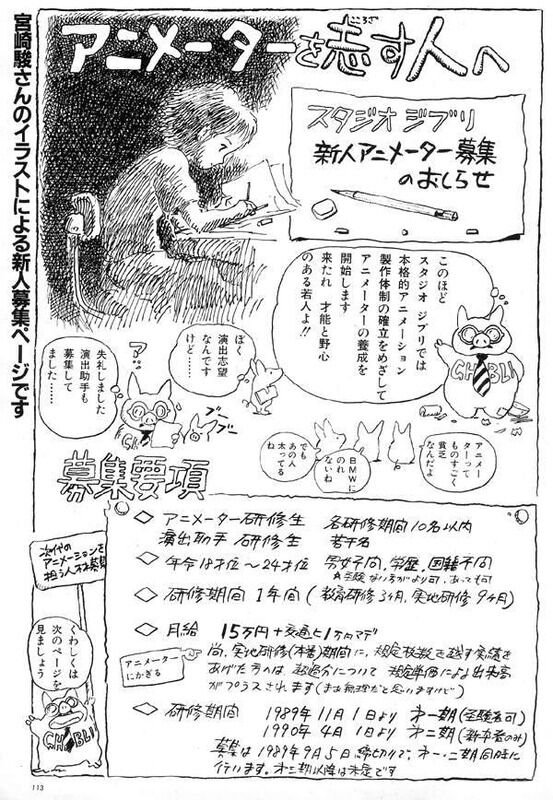 宮崎駿さんのイラストによる新人募集ページです
アニメーターを志す人へ
こころざ
スタジオ ジブリ
新人アニメーター募集
のおしらせ
このほど
スタジオ ジブリでは
本格的アニメーション
製作体制の確立をめざして
アニメーターの養成を
開始します
来たれ 才能と野心
のある若人よ!!
GHIBLI
ぼく
演出志望
なんです
けど……
アッ
失礼しました
演出助手も
募集して
ました……
アニメー
ターって
ものすごく
貧乏
なんだよ
BMWに
のれ
ないね
でも
あの人
太ってる
ね
募集要項
◇ アニメーター研修生 各研修期間10名以内
演出助手 研修生 若干名
◇ 年令18才位〜24才位 男女不問、学歴、国籍不問
◇ 研修期間 1年間 (教育研修3ヶ月、実地研修9ヶ月)
◇ 月給 15万円+交通ヒ1万マデ
アニメーター
にかぎる
尚、実地研修(本番)期間に、規定枚数を越す実績を
あげた方へは、超過分について 規定単価による出来高
がプラスされます(まず無理だと思いますけど)
◇ 研修期間 1989年11月1日より 才一期(経験者可)
1990年4月1日より 才二期(新卒者のみ)
募集は1989年9月5日締切りで、才一・二期同時に
行います。才三期以降は未定です
次代の
アニメーションを
担う人材募集
くわしくは
次のページを
見ましょう
GHIBLI
113